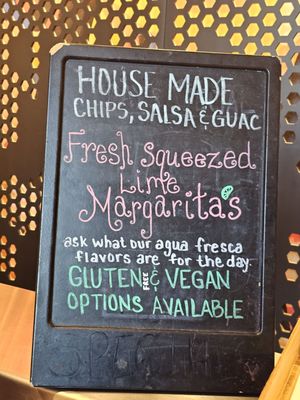 HOUSE MADE
CHIPS, SALSA & GUAC
Fresh Squeezed
Lime
Margarita's
ask what our agua fresca
flavors are for the day.
GLUTEN FREE & VEGAN
OPTIONS AVAILABLE